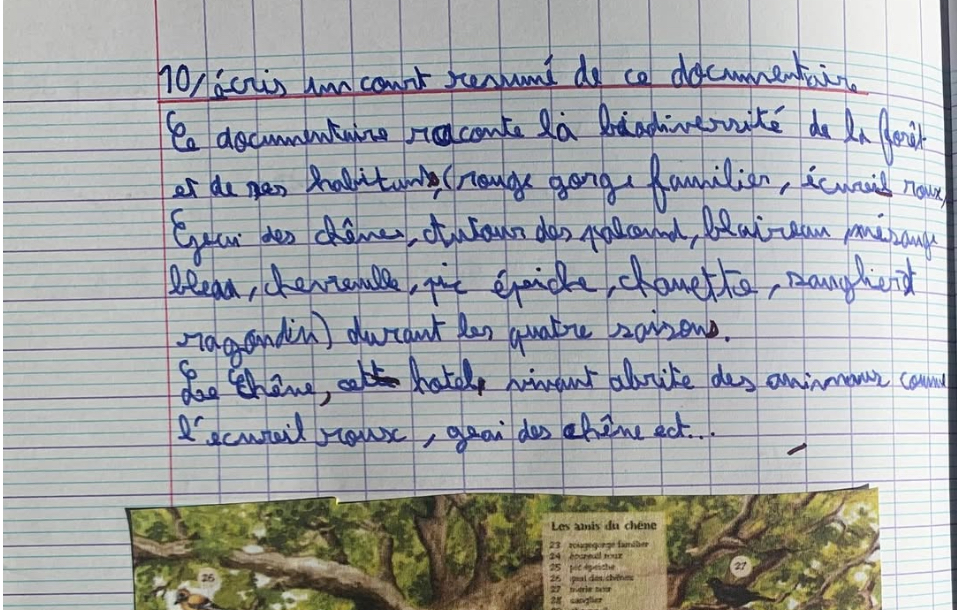 10/ écris un court resumé de ce documentaire
Ce documentaire raconte la biodiversité de la forêt
et de ses habitants (rouge gorge familier, écureil roux,
Geai des chênes, Autour des palomd, blaireau, mésange
bleau, chevreulle, pic épeiche, chouette, sanglierd
ragondin) durant les quatre saisons.
Le Chêne, cett hotel, vivant abrite des animaux comme
l'écureil roux, geai des chêne ect...
Les amis du chêne
23 rougegorge familier
24 écureuil roux
25 pic épeiche
26 geai des chênes
27 merle noir
28 sanglier
26
27